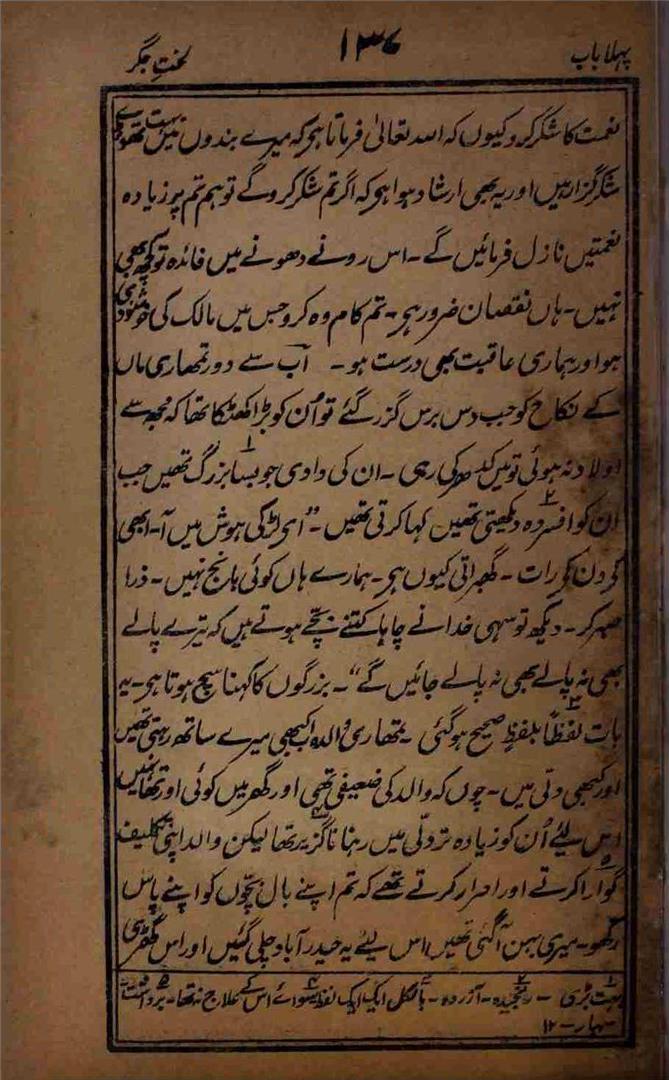 پہلا باب ۱۳۶ لختِ جگر
نعمت کا شکر کرو کیوں کہ اللہ تعالیٰ فرماتا ہی کہ میرے بندوں میں بہت تھوڑے
شکرگزار ہیں اور یہ بھی ارشاد ہوا ہی کہ اگر تم شکر کروگے تو ہم تم پر زیادہ
نعمتیں نازل فرمائیں گے۔ اس رونے دھونے میں فائدہ تو کچھ بھی
نہیں۔ ہاں نقصان ضرور ہی۔ تم کام وہ کرو جس میں مالک کی خوشنودی
ہو اور ہماری عاقبت بھی درست ہو۔ آب سے دور تمھاری ماں
کے نکاح کو جب دس برس گزر گئے تو اُن کو بڑا کھٹکا تھا کہ مجھ سے
اولاد نہ ہوئی تو میں کیسے کی رہی۔ ان کی دادی جو بسا۱ بزرگ تھیں جب
ان کو افسردہ۲ دیکھتی تھیں کہا کرتی تھیں۔ "ای لڑکی ہوش میں آ۔ ابھی
کَے دن کَے رات۔ گھبراتی کیوں ہی۔ ہمارے ہاں کوئی بانج نہیں۔ ذرا
صبر کر۔ دیکھ تو سہی خدا نے چاہا کتنے بچّے ہوتے ہیں کہ تیرے پالے
بھی نہ پالے بھی نہ پالے جائیں گے"۔ بزرگوں کا کہنا سچ ہوتا ہی۔ یہ
بات لفظاً۳ بلفظٍ صحیح ہو گئی۔ تمھاری والدہ اب کبھی میرے ساتھ رہتی تھیں
اور کبھی دتی میں۔ چوں کہ والد کی ضعیفی تھی اور گھر میں کوئی اور تھا نہیں
اس لیئے اُن کو زیادہ تر دلّی میں رہنا ناگزیر۴ تھا لیکن والد اپنی تکلیف
گوارا۵ کرتے اور اصرار کرتے تھے کہ تم اپنے بال بچّوں کو اپنے پاس
رکھو۔ میری بہن آ گئی تھیں اس لیئے یہ حیدرآباد چلی گئیں اور اس گھڑی
۱ بہت بڑی۔ ۲ رنجیدہ۔ آزردہ۔ ۳ بالکل ایک ایک لفظ۔ ۴ سوائے اس کے علاج نہ تھا۔ ۵ برداشت
سہار۔ ۱۲